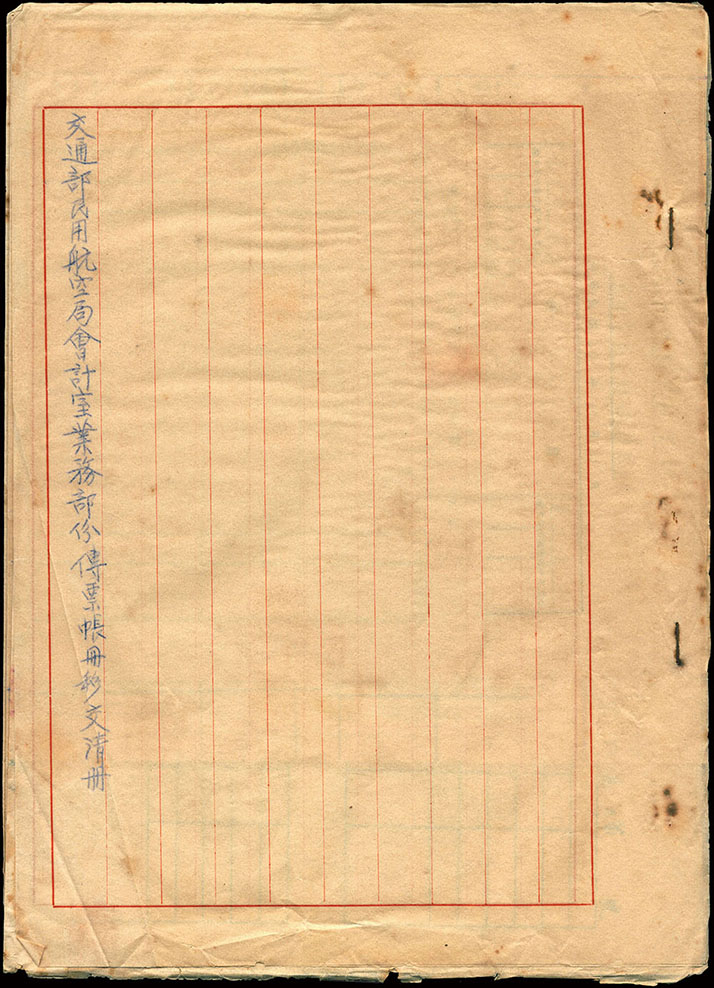 交通部民用航空局會計室業務部份傳票帳冊移交清冊